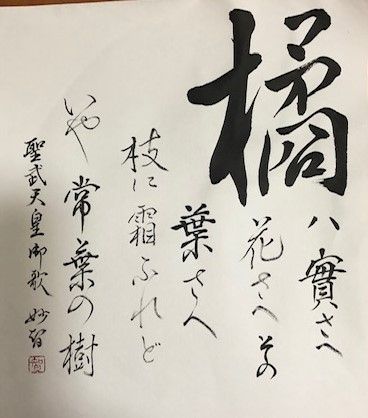 橘
ハ實さへ
花さへその
葉さへ
枝に霜ふれど
いや常葉の樹
聖武天皇御歌 妙智